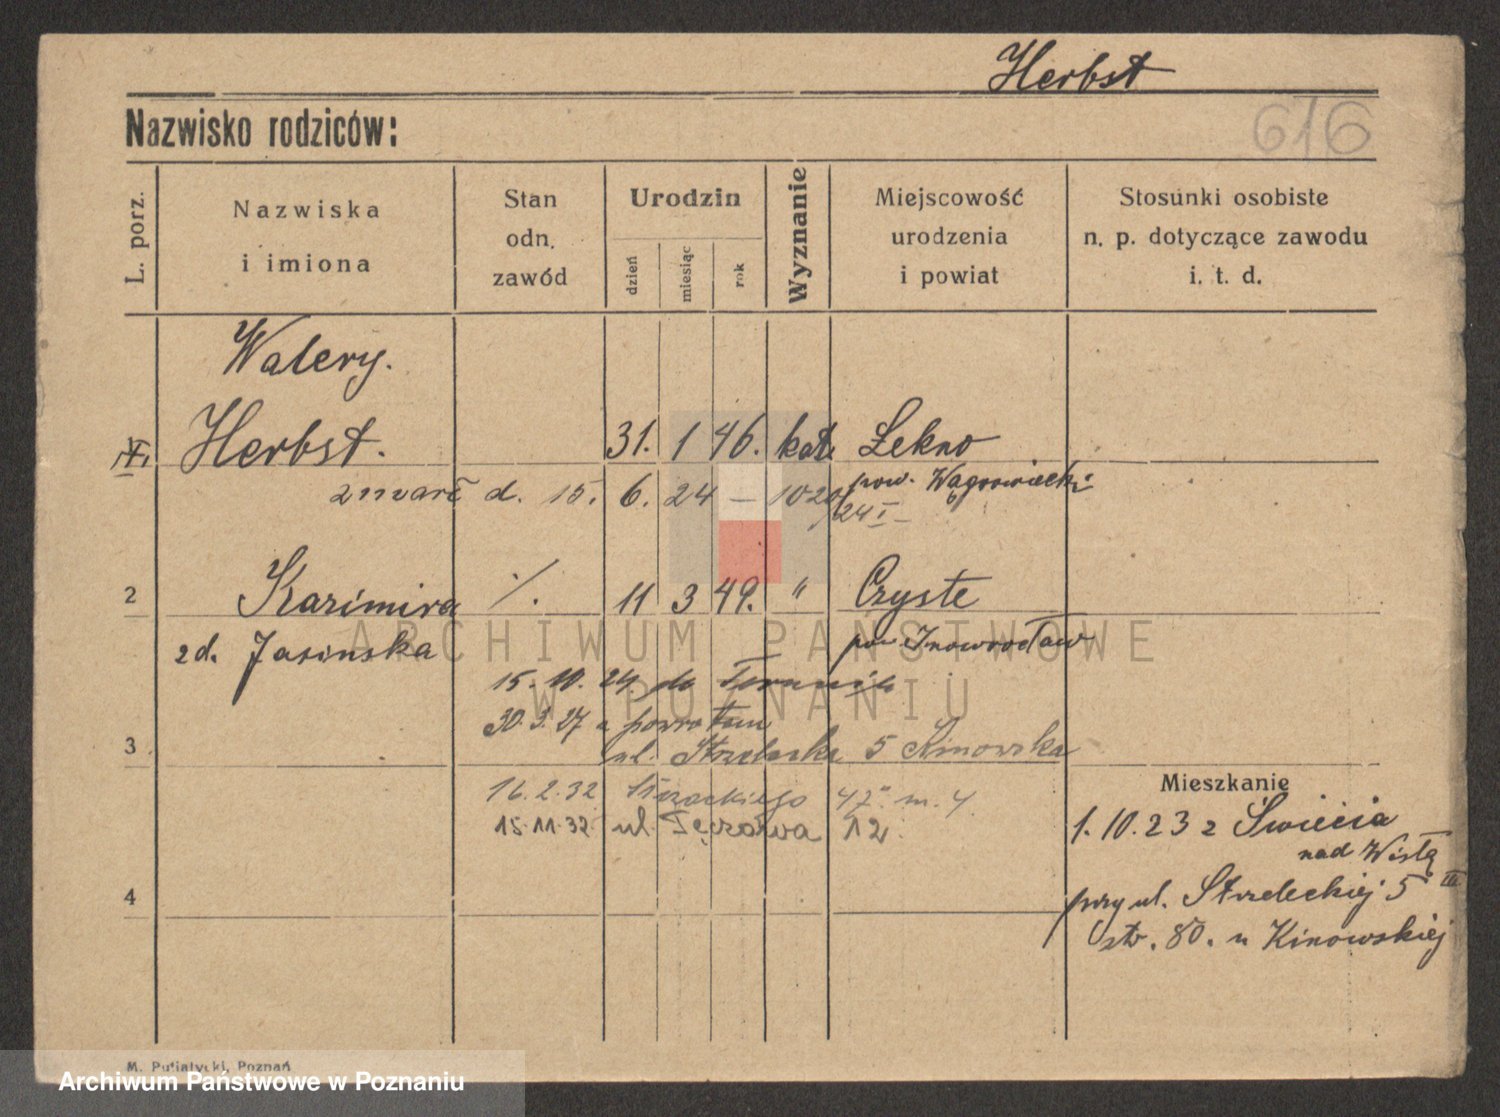 Herbst
Nazwisko rodziców:
616
L. porz.
Nazwiska
i imiona
Stan
odn.
zawód
Urodzin
dzień
miesiąc
rok
Wyznanie
Miejscowość
urodzenia
i powiat
Stosunki osobiste
n. p. dotyczące zawodu
i. t. d.
Walery.
Herbst. 31. 1 46. kat. Łekno
zmarł d. 15. 6. 24 — 1020/24 I pow. Wągrowiecki
2 Kazimira ./. 11 3 49. " Czyste
zd. Jasinska pow. Inowrocław
15. 10. 24 do Torunia
30. 3. 27 z powrotem
3 ul. Strzelecka 5 Kinowska
Mieszkanie
16. 2. 32 47 m. 4
15. 11. 32. ul. Tęczowa 12.
1. 10. 23 z Świecia
nad Wisłą
4 przy ul. Strzeleckiej 5 III
str. 80. u Kinowskiej
ARCHIWUM PAŃSTWOWE
W POZNANIU
M. Putiatycki, Poznań
Archiwum Państwowe w Poznaniu